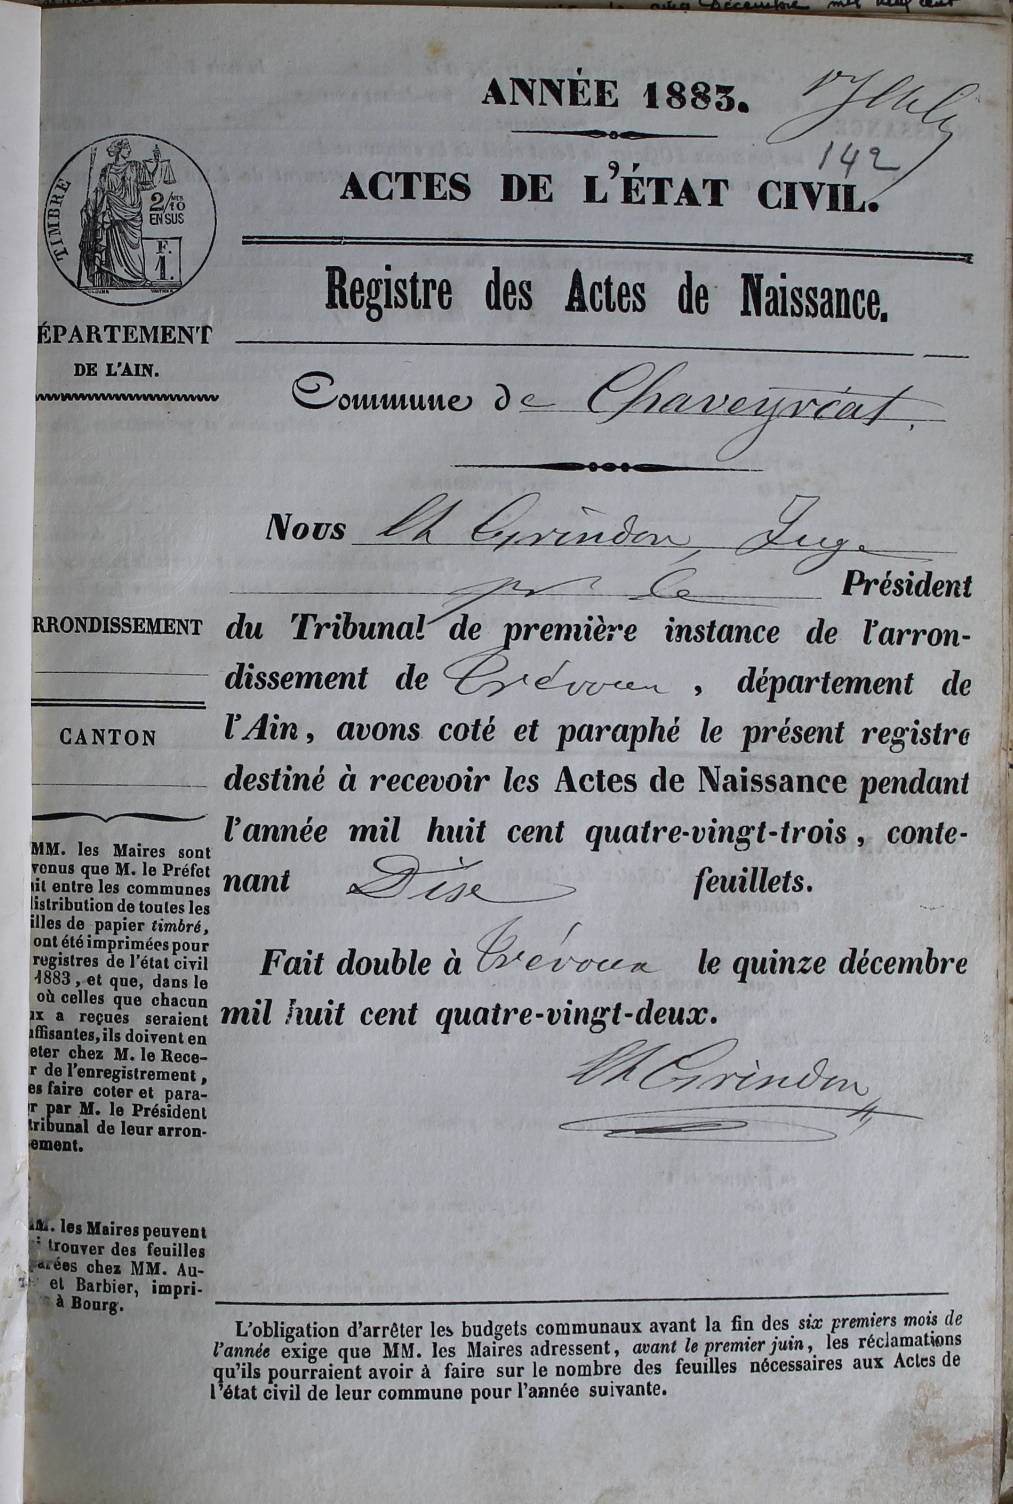 ANNÉE 1883.
142
ACTES DE L'ÉTAT CIVIL.
TIMBRE
2/10 MES
EN SUS
F.
1.
Registre des Actes de Naissance.
ÉPARTEMENT
DE L'AIN.
Commune de Chaveyriat.
Nous Ch Grindon, Juge
pr le Président
du Tribunal de première instance de l'arron-
dissement de Trévoux, département de
l'Ain, avons coté et paraphé le présent registre
destiné à recevoir les Actes de Naissance pendant
l'année mil huit cent quatre-vingt-trois, conte-
nant Dise feuillets.
Fait double à Trévoux le quinze décembre
mil huit cent quatre-vingt-deux.
Ch Grindon
RRONDISSEMENT
CANTON
MM. les Maires sont
venus que M. le Préfet
it entre les communes
distribution de toutes les
illes de papier timbré,
ont été imprimées pour
registres de l'état civil
1883, et que, dans le
où celles que chacun
ux a reçues seraient
uffisantes, ils doivent en
eter chez M. le Rece-
r de l'enregistrement,
es faire coter et para-
r par M. le Président
tribunal de leur arron-
ement.
M. les Maires peuvent
trouver des feuilles
arées chez MM. Au-
et Barbier, impri-
à Bourg.
L'obligation d'arrêter les budgets communaux avant la fin des six premiers mois de
l'année exige que MM. les Maires adressent, avant le premier juin, les réclamations
qu'ils pourraient avoir à faire sur le nombre des feuilles nécessaires aux Actes de
l'état civil de leur commune pour l'année suivante.